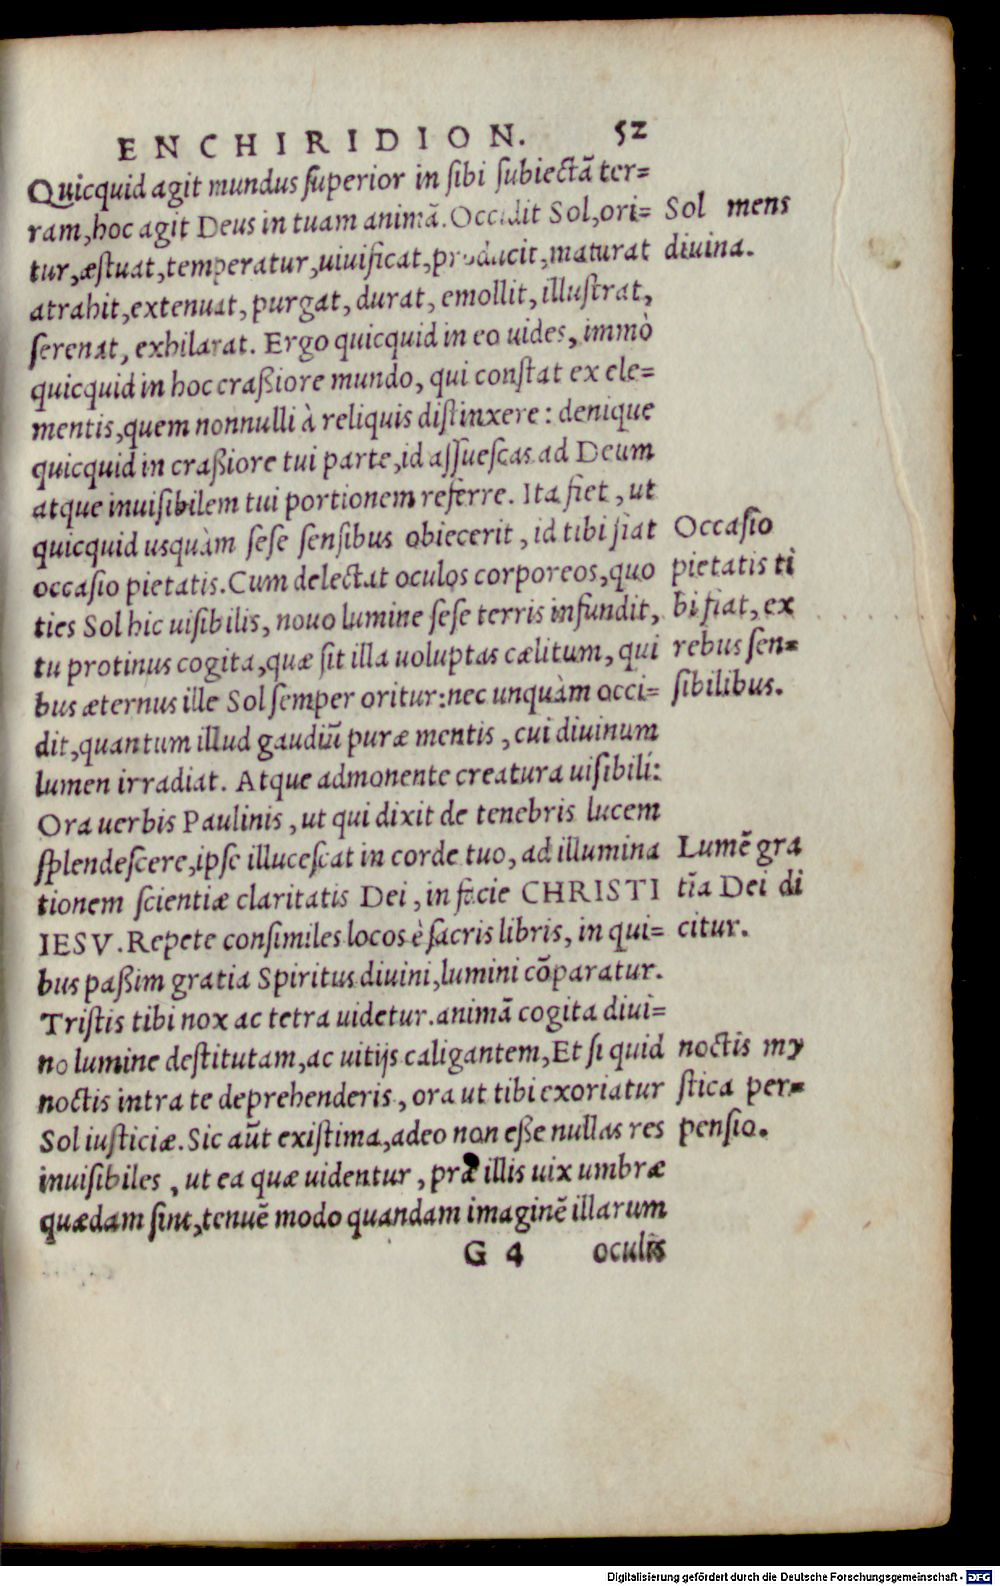 ENCHIRIDION. 52
Quicquid agit mundus ſuperior in ſibi ſubiectā ter=
ram, hoc agit Deus in tuam animā. Occidit Sol, ori=
tur, æſtuat, temperatur, uiuificat, producit, maturat
atrahit, extenuat, purgat, durat, emollit, illuſtrat,
ſerenat, exhilarat. Ergo quicquid in eo uides, immò
quicquid in hoc craßiore mundo, qui conſtat ex ele=
mentis, quem nonnulli à reliquis diſtinxere: denique
quicquid in craßiore tui parte, id aſſueſcas ad Deum
atque inuiſibilem tui portionem referre. Ita fiet, ut
quicquid usquàm ſeſe ſenſibus obiecerit, id tibi fiat
occaſio pietatis. Cum delectat oculos corporeos, quo
ties Sol hic uiſibilis, nouo lumine ſeſe terris infundit,
tu protinus cogita, quæ ſit illa uoluptas cælitum, qui
bus æternus ille Sol ſemper oritur: nec unquàm occi=
dit, quantum illud gaudiū puræ mentis, cui diuinum
lumen irradiat. Atque admonente creatura uiſibili:
Ora uerbis Paulinis, ut qui dixit de tenebris lucem
ſplendeſcere, ipſe illuceſcat in corde tuo, ad illumina
tionem ſcientiæ claritatis Dei, in facie CHRISTI
IESV. Repete conſimiles locos è ſacris libris, in qui=
bus paßim gratia Spiritus diuini, lumini cōparatur.
Triſtis tibi nox ac tetra uidetur. animā cogita diui=
no lumine deſtitutam, ac uitijs caligantem, Et ſi quid
noctis intra te deprehenderis, ora ut tibi exoriatur
Sol iuſticiæ. Sic aūt exiſtima, adeo non eße nullas res
inuiſibiles, ut ea quæ uidentur, præ illis uix umbræ
quædam ſint, tenuē modo quandam imaginē illarum
G 4 oculis
Sol mens
diuina.
Occaſio
pietatis ti
bi fiat, ex
rebus ſen=
ſibilibus.
Lumē gra
tīa Dei di
citur.
noctis my
ſtica per=
penſio.
Digitalisierung gefördert durch die Deutsche Forschungsgemeinschaft - DFG